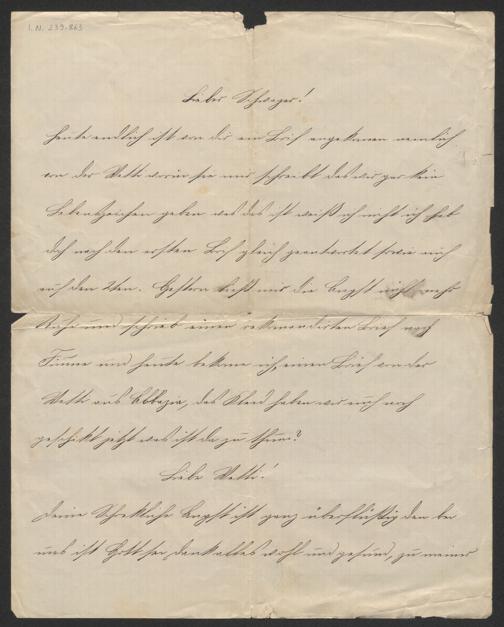 I. N. 239.863
Lieber Schwager!
heute endlich ist von dir ein Brief angekomen nemlich
von der Netti worin sie uns schreibt das wir gar kein
Lebenszeichen geben was das ist weiß ich nicht ich hab
doch nach den ersten Brief gleich geantwortet sowie auch
auf den 2ten. Gestern ließ mir die Angst nicht mehr
Ruhe und schrieb einen rekomandirten Brief nach
Fiume und heute bekome ich einen Brief von der
Netti aus Abbazia, das Kleid haben wir auch nach
geschikt jetzt was ist da zu thun?
Liebe Netti!
Deine Schrekliche Angst ist ganz überflüßig den bei
uns ist Gott sei dank alles wohl und gesund, zu meiner